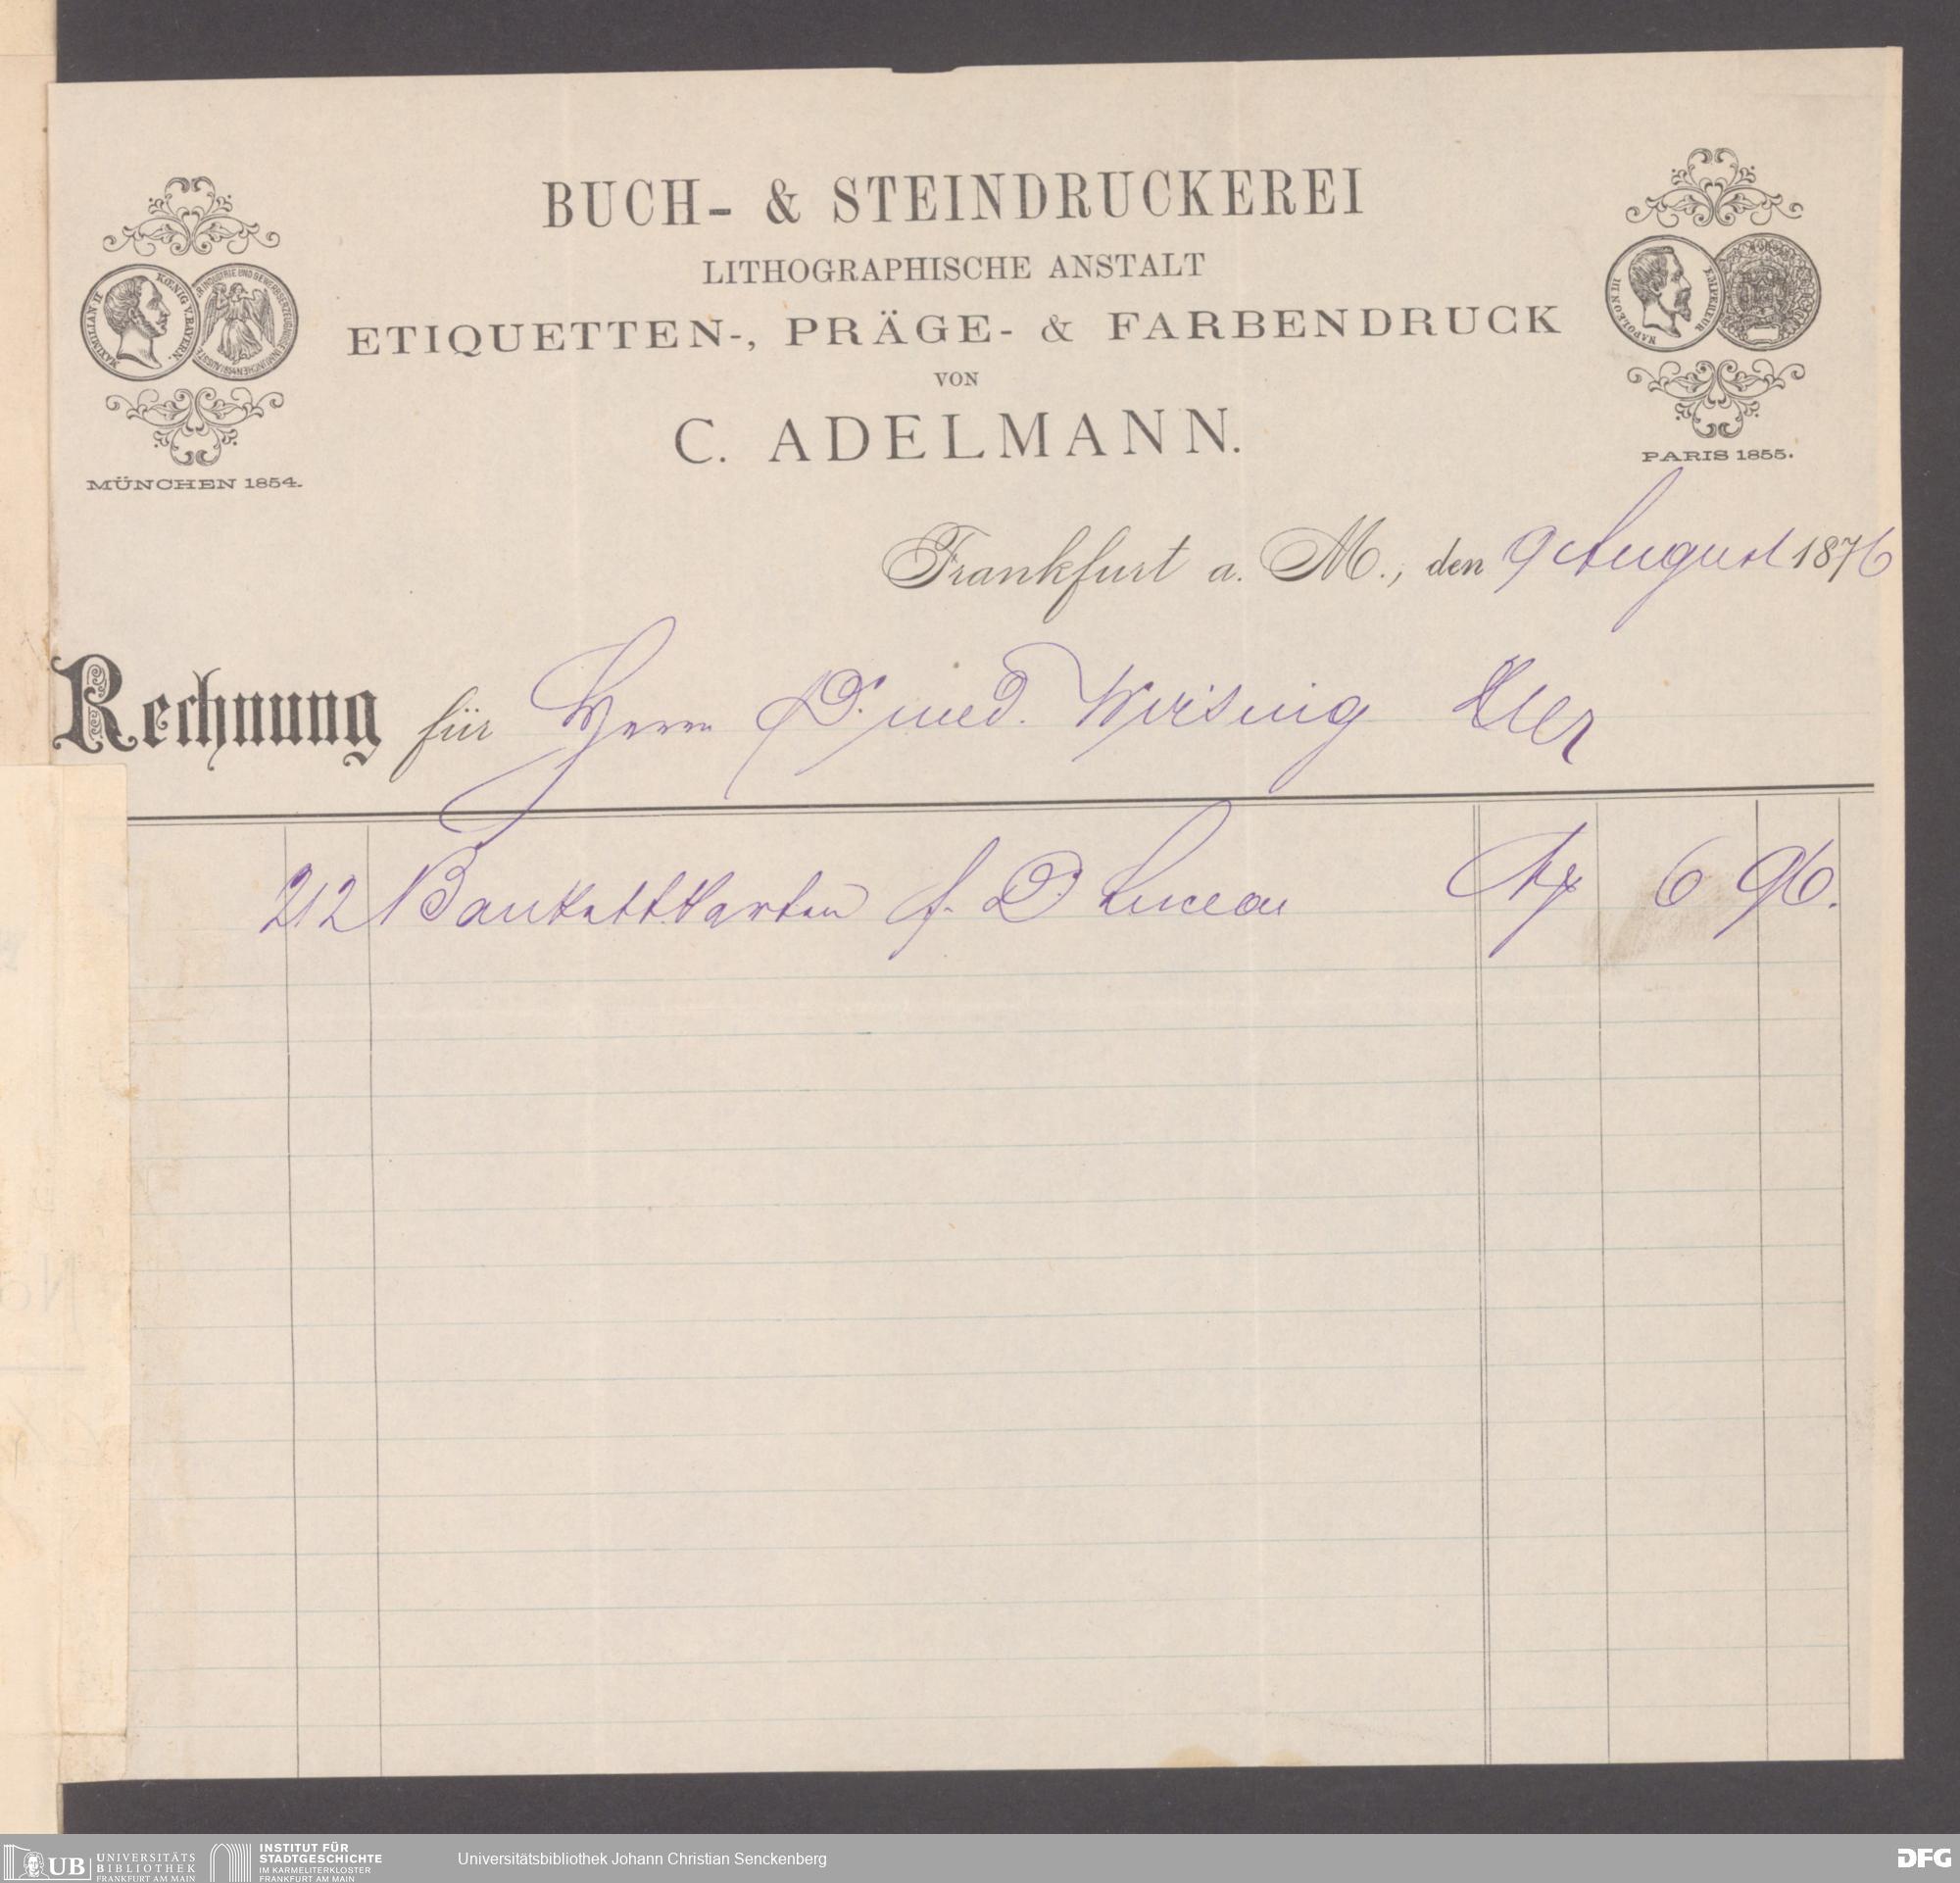 BUCH- & STEINDRUCKEREI
LITHOGRAPHISCHE ANSTALT
ETIQUETTEN-, PRÄGE- & FARBENDRUCK
VON
C. ADELMANN.
MAXIMILIAN II KŒNIG V. BAYERN.
MÜNCHEN 1854.
NAPOLEON III EMPEREUR
PARIS 1855.
Frankfurt a. M., den 9 August 1876
Rechnung für Herrn Dr. med. Wirsing Hier
212 Bankettkarten f. Dr Lucae M 6 96.
UB UNIVERSITÄTS
BIBLIOTHEK
FRANKFURT AM MAIN
INSTITUT FÜR
STADTGESCHICHTE
IM KARMELITERKLOSTER
FRANKFURT AM MAIN
Universitätsbibliothek Johann Christian Senckenberg
DFG